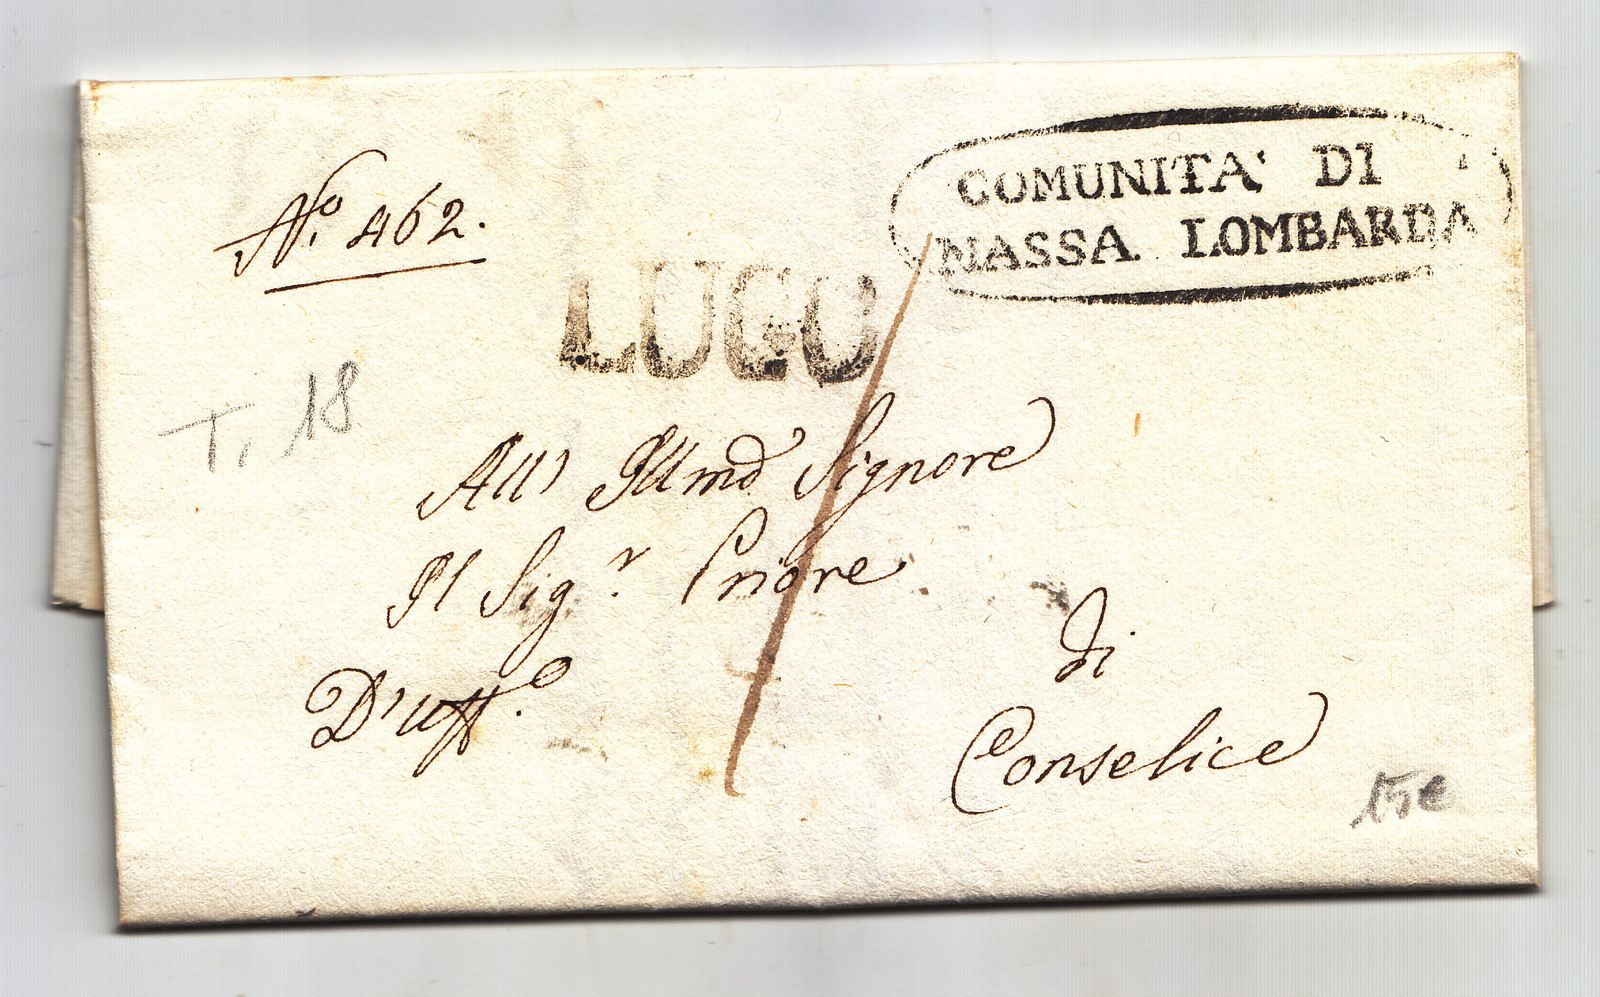 COMUNITA' DI
MASSA LOMBARDA
N.º 462.
LUGO
T. 18
All' Illmo Signore
Il Sig.r Priore
di
D'uff.o
Conselice
15€